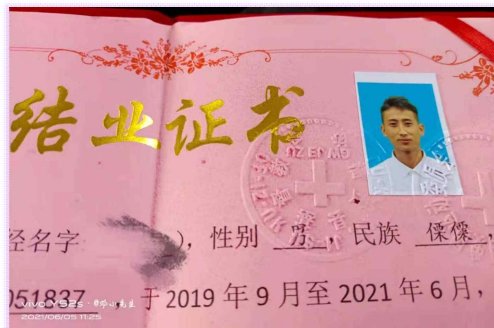 结业证书
经名字 ），性别 男，民族 傈僳，
051837， 于2019年9月至2021年6月，
vivo Y52s ·
2021/06/05 11:25